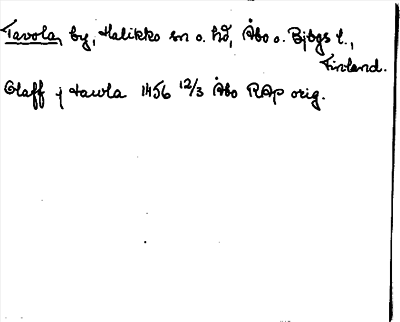 Tavola, by, Halikko sn o. hd, Åbo o. Bjbgs l.,
Finland.
Olaff j tawla 1456 12/3 Åbo RAp orig.